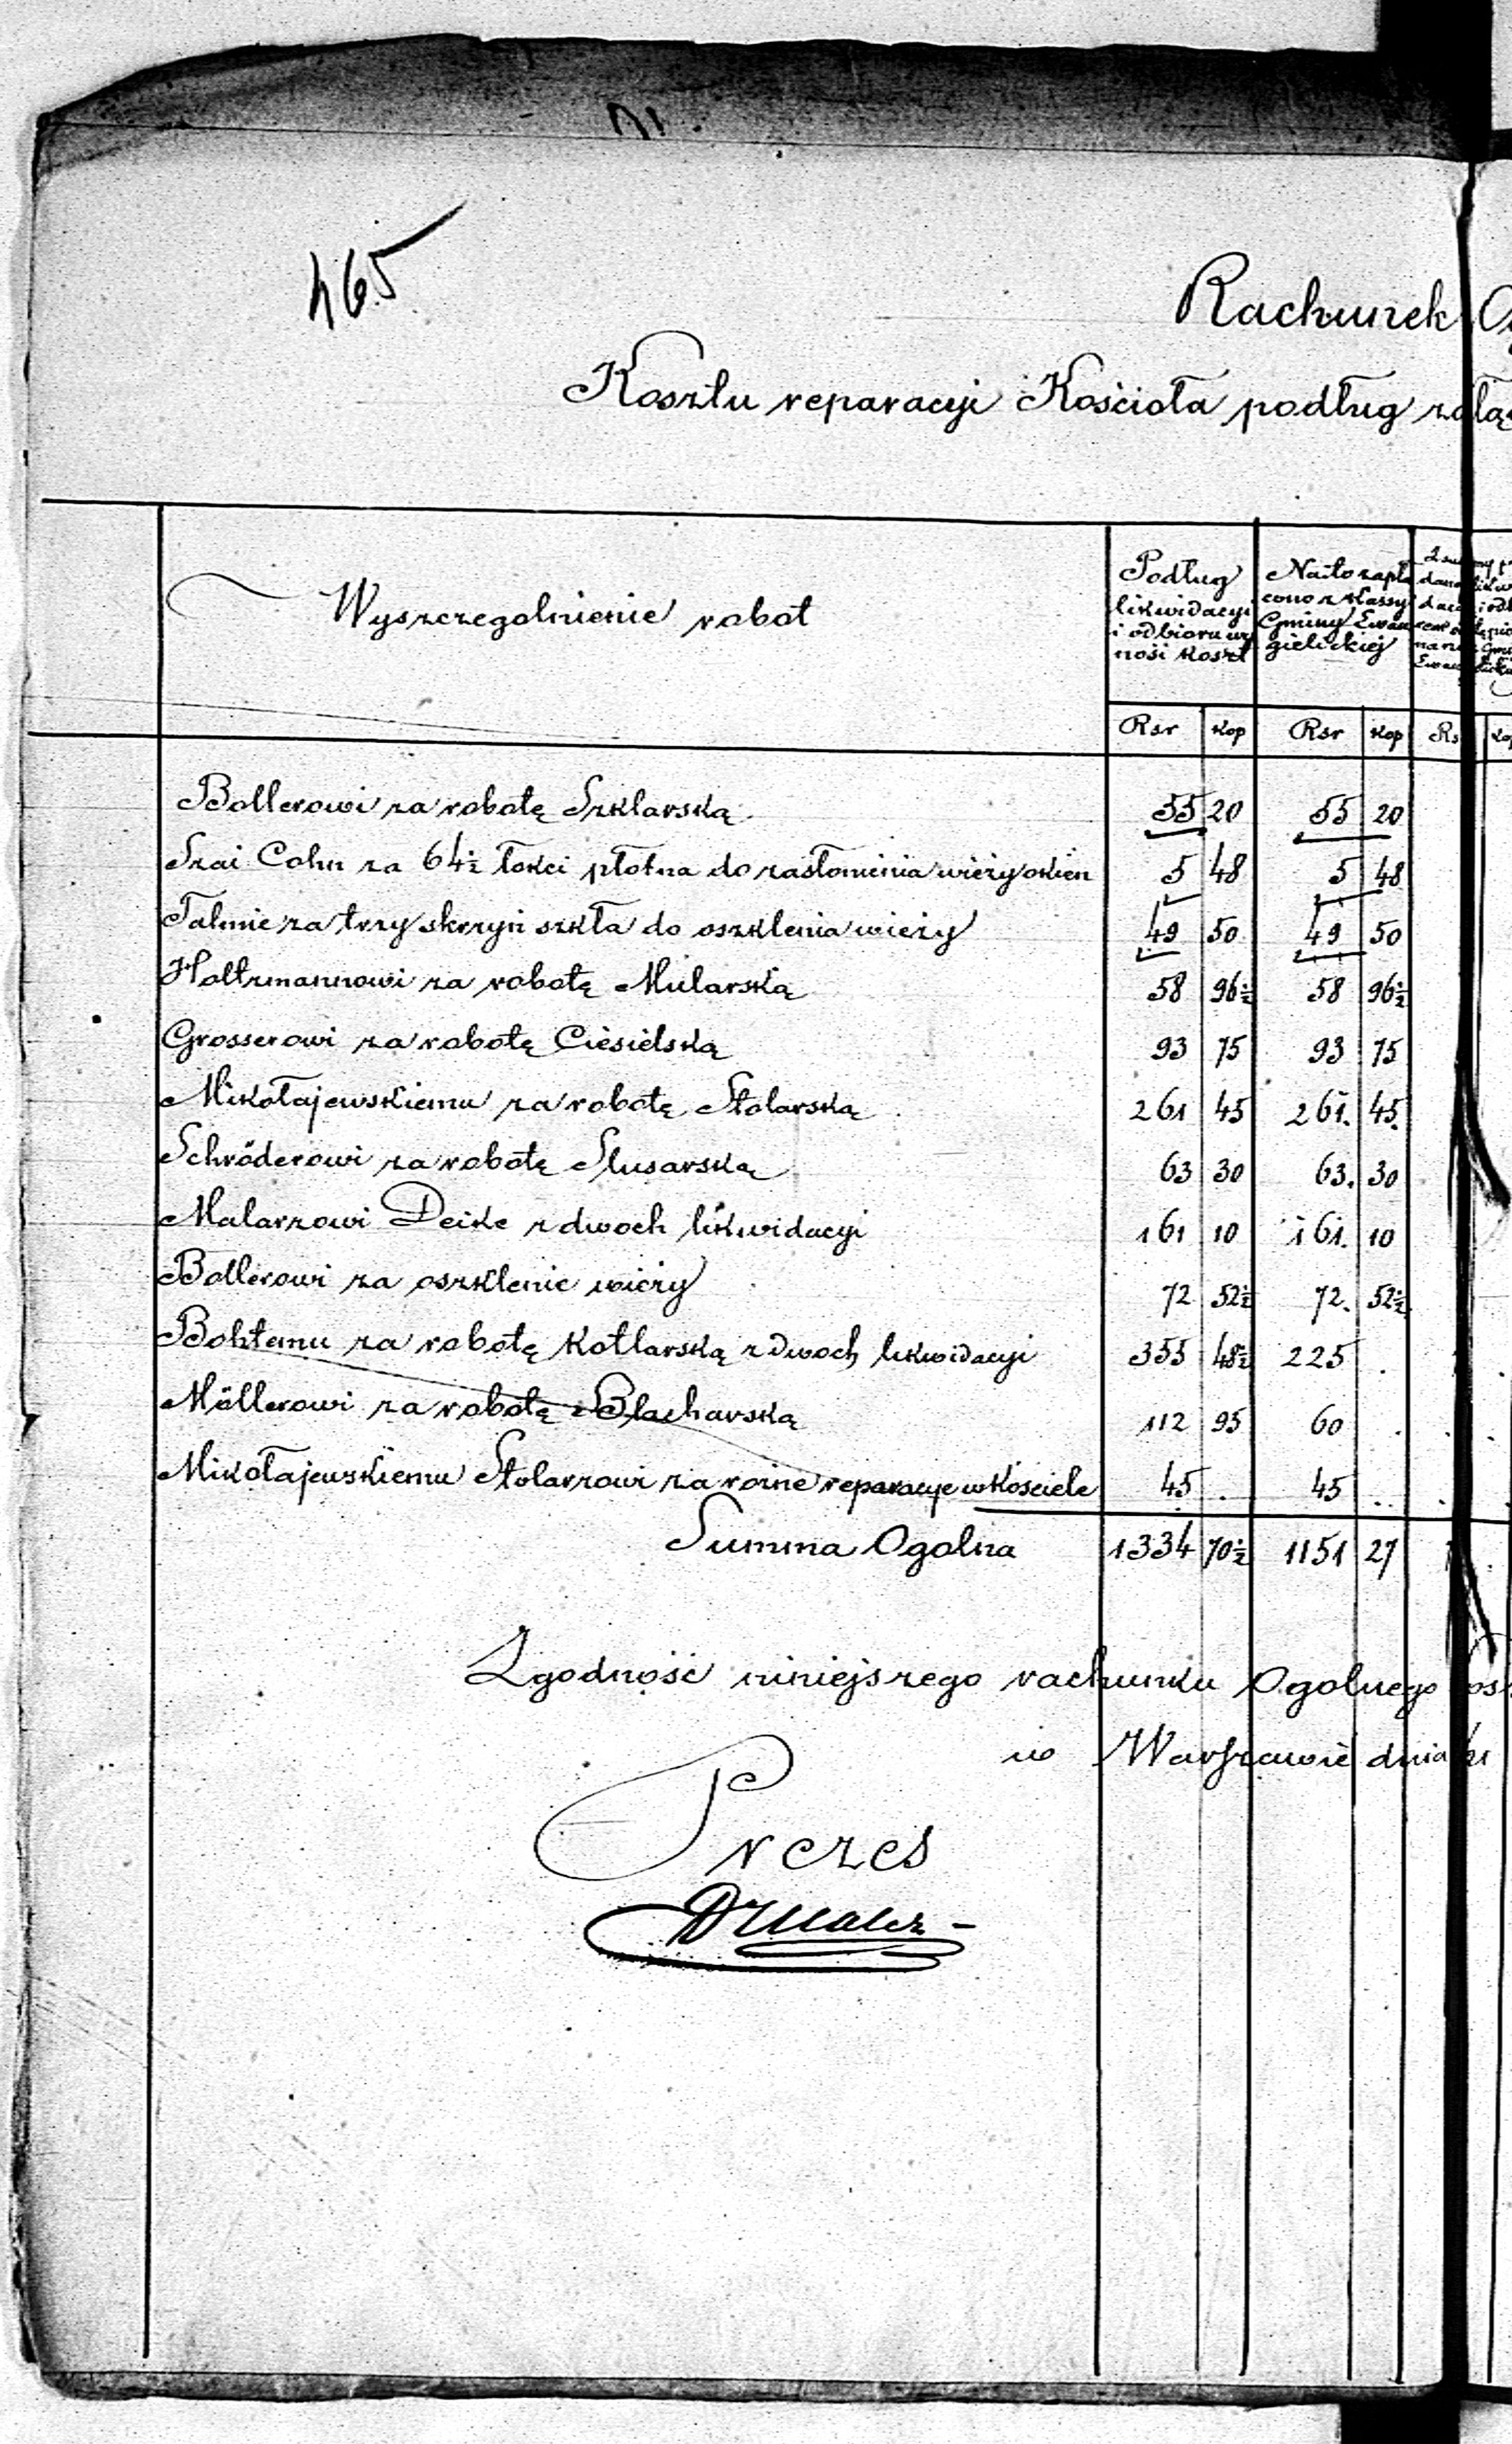 465
Rachunek
Kosztu reparacyi Kościoła podług
Wyszczegolnienie robot
Podług likwidacyi i odbioru wynosi koszt
Na to zapłacono z Kassy Gminy Ewangielickiej
Rsr kop Rsr kop
Bollerowi za robotę Szklarską 55 20 55 20
Szai Cohn za 64½ łokci płotna do zasłonienia wieży okien 5 48 5 48
za trzy skrzyń szkła do oszklenia wieży 49 50 49 50
Holtzmannowi za robotę Mularską 58 96½ 58 96½
Grosserowi za robotę Ciesielską 93 75 93 75
Mikołajewskiemu za robotę Stolarską 261 45 261. 45.
Schröderowi za robotę Slusarską 63 30 63. 30
Malarzowi Deike z dwoch likwidacyi 161 10 161. 10
Bollerowi za oszklenie wieży 72 52½ 72. 52½
Bohtemu za robotę Kotlarską z dwoch likwidacyi 355 48½ 225 .
Möllerowi za robotę Blacharską 112 95 60 .
Mikołajewskiemu Stolarzowi za rożne reparacye w Kościele 45 . 45 ..
Summa Ogolna 1334 70½ 1151 27
Zgodność niniejszego rachunku Ogolnego
w Warszawie dnia
Prezes